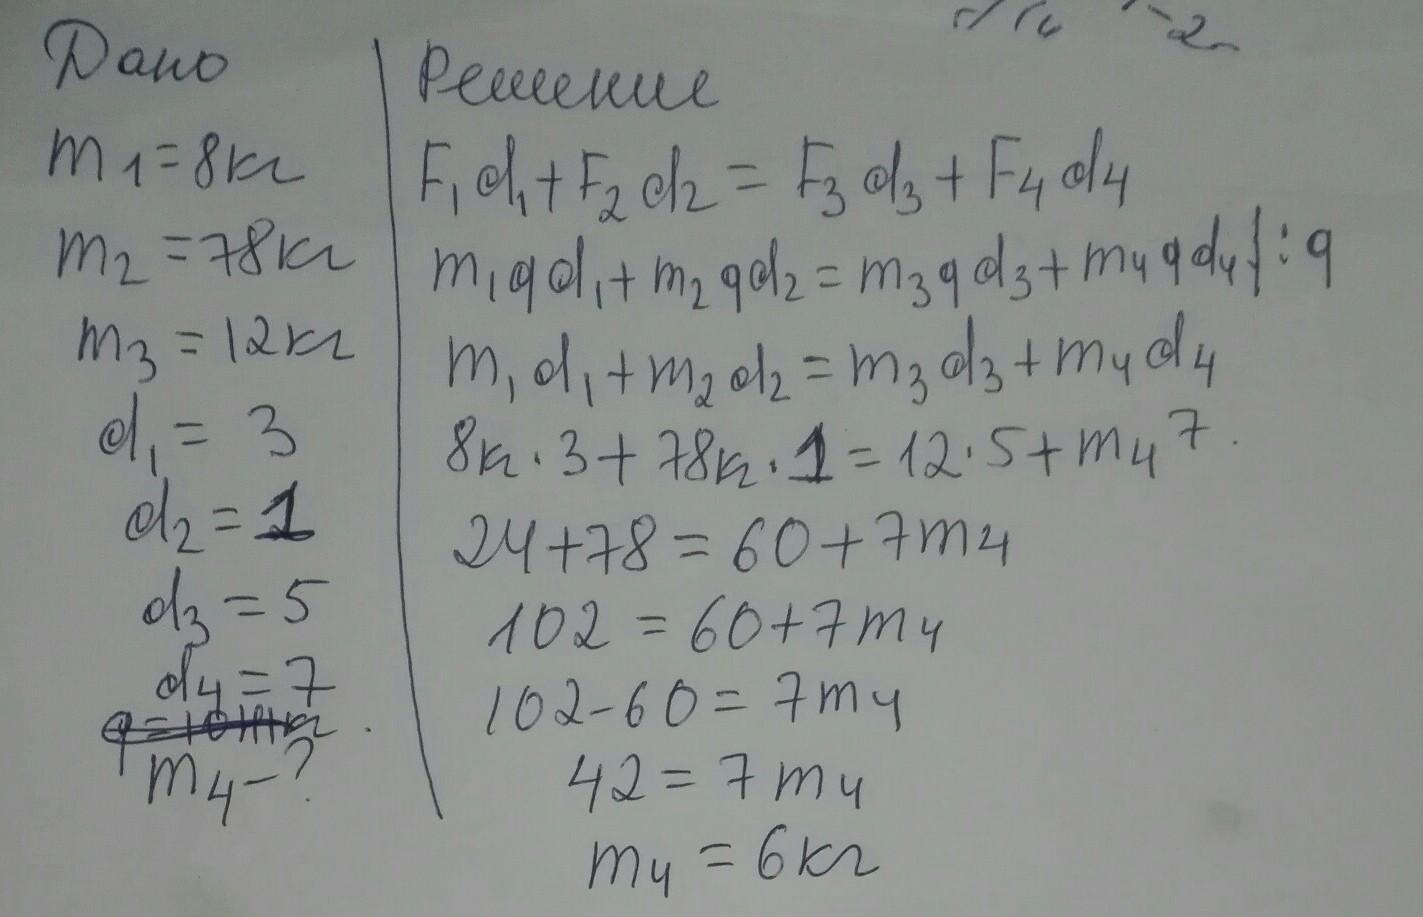 Дано
m1=8кг
m2=78кг
m3=12кг
d1=3
d2=1
d3=5
d4=7
m4-?
Решение
F1d1+F2d2=F3d3+F4d4
m1gd1+m2gd2=m3gd3+m4gd4}:g
m1d1+m2d2=m3d3+m4d4
8кг·3+78кг·1=12·5+m47.
24+78=60+7m4
102=60+7m4
102-60=7m4
42=7m4
m4=6кг